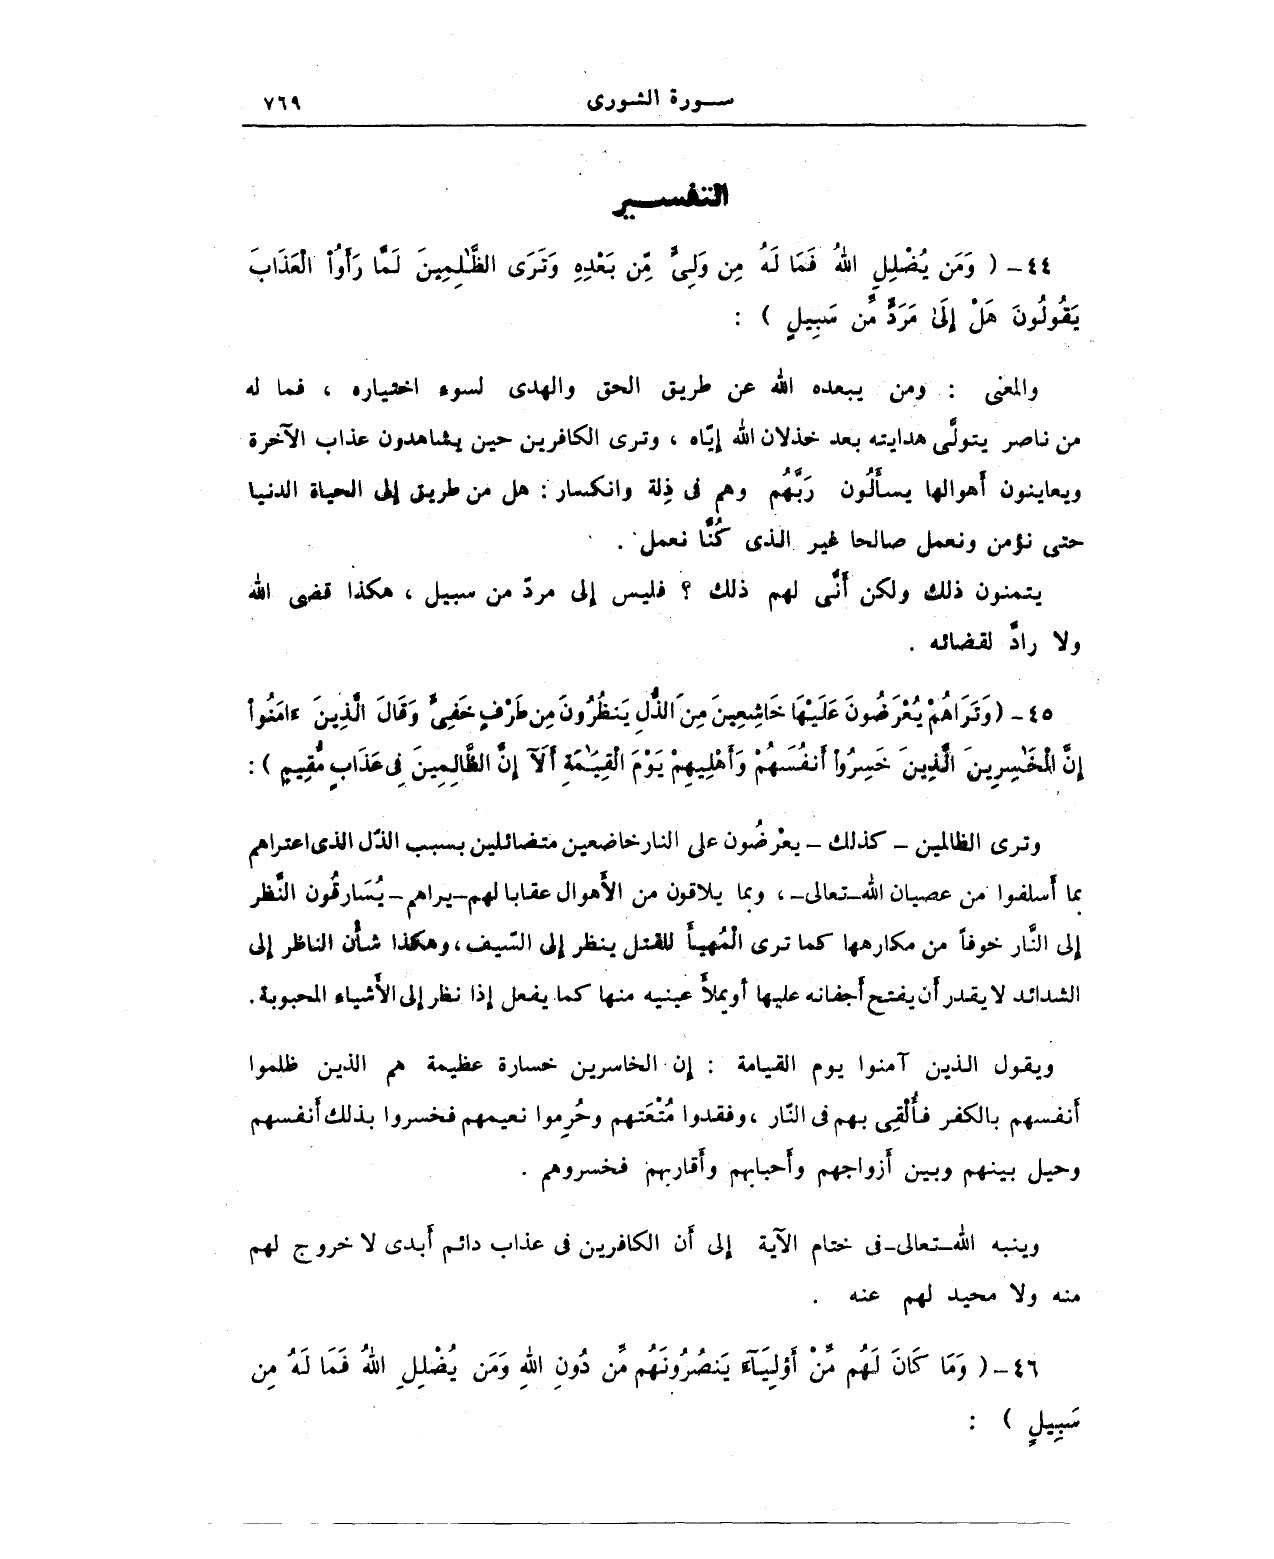 سورة الشورى ٧٦٩
التفسير
٤٤ - ( وَمَن يُضْلِلِ اللهُ فَمَا لَهُ مِن وَلِىٍّ مِّن بَعْدِهِ وَتَرَى الظَّٰلِمِينَ لَمَّا رَأَوُا۟ الْعَذَابَ
يَقُولُونَ هَلْ إِلَىٰ مَرَدٍّ مِّن سَبِيلٍ ) :
والمعنى : ومن يبعده الله عن طريق الحق والهدى لسوء اختياره ، فما له
من ناصر يتولَّى هدايته بعد خذلان الله إيّاه ، وترى الكافرين حين يشاهدون عذاب الآخرة
ويعاينون أهوالها يسأَلُون رَبَّهُم وهم فى ذِلة وانكسار : هل من طريق إلى الحياة الدنيا
حتى نؤمن ونعمل صالحا غير الذى كُنَّا نعمل .
يتمنون ذلك ولكن أَنَّى لهم ذلك ؟ فليس إلى مردّ من سبيل ، هكذا قضى الله
ولا رادَّ لقضائه .
٤٥ - (وَتَرَاهُمْ يُعْرَضُونَ عَلَيْهَا خَاشِعِينَ مِنَ الذُّلِّ يَنظُرُونَ مِن طَرْفٍ خَفِىٍّ وَقَالَ الَّذِينَ ءَامَنُوا۟
إِنَّ الْخَٰسِرِينَ الَّذِينَ خَسِرُوا۟ أَنفُسَهُمْ وَأَهْلِيهِمْ يَوْمَ الْقِيَٰمَةِ أَلَآ إِنَّ الظَّالِمِينَ فِى عَذَابٍ مُّقِيمٍ ) :
وترى الظالمين - كذلك - يعْرضُون على النار خاضعين متضائلين بسبب الذّل الذى اعتراهم
بما أسلفوا من عصيان الله - تعالى - ، وبما يلاقون من الأَهوال عقابا لهم - يراهم - يُسَارقُون النَّظر
إلى النَّار خوفاً من مكارهها كما ترى الْمُهيأَ للقتل ينظر إلى السّيف ، وهكذا شأْن الناظر إلى
الشدائد لا يقدر أَن يفتح أَجفانه عليها أَو يملأَ عينيه منها كما يفعل إذا نظر إلى الأَشياء المحبوبة .
ويقول الذين آمنوا يوم القيامة : إن الخاسرين خسارة عظيمة هم الذين ظلموا
أَنفسهم بالكفر فأُلْقِى بهم فى النّار ، وفقدوا مُتْعَتهم وحُرِموا نعيمهم فخسروا بذلك أَنفسهم
وحيل بينهم وبين أَزواجهم وأَحبابهم وأَقاربهم فخسروهم .
وينبه الله - تعالى - فى ختام الآية إلى أَن الكافرين فى عذاب دائم أَبدى لا خروج لهم
منه ولا محيد لهم عنه .
٤٦ - ( وَمَا كَانَ لَهُم مِّنْ أَوْلِيَآءَ يَنصُرُونَهُم مِّن دُونِ اللهِ وَمَن يُضْلِلِ اللهُ فَمَا لَهُ مِن
سَبِيلٍ ) :